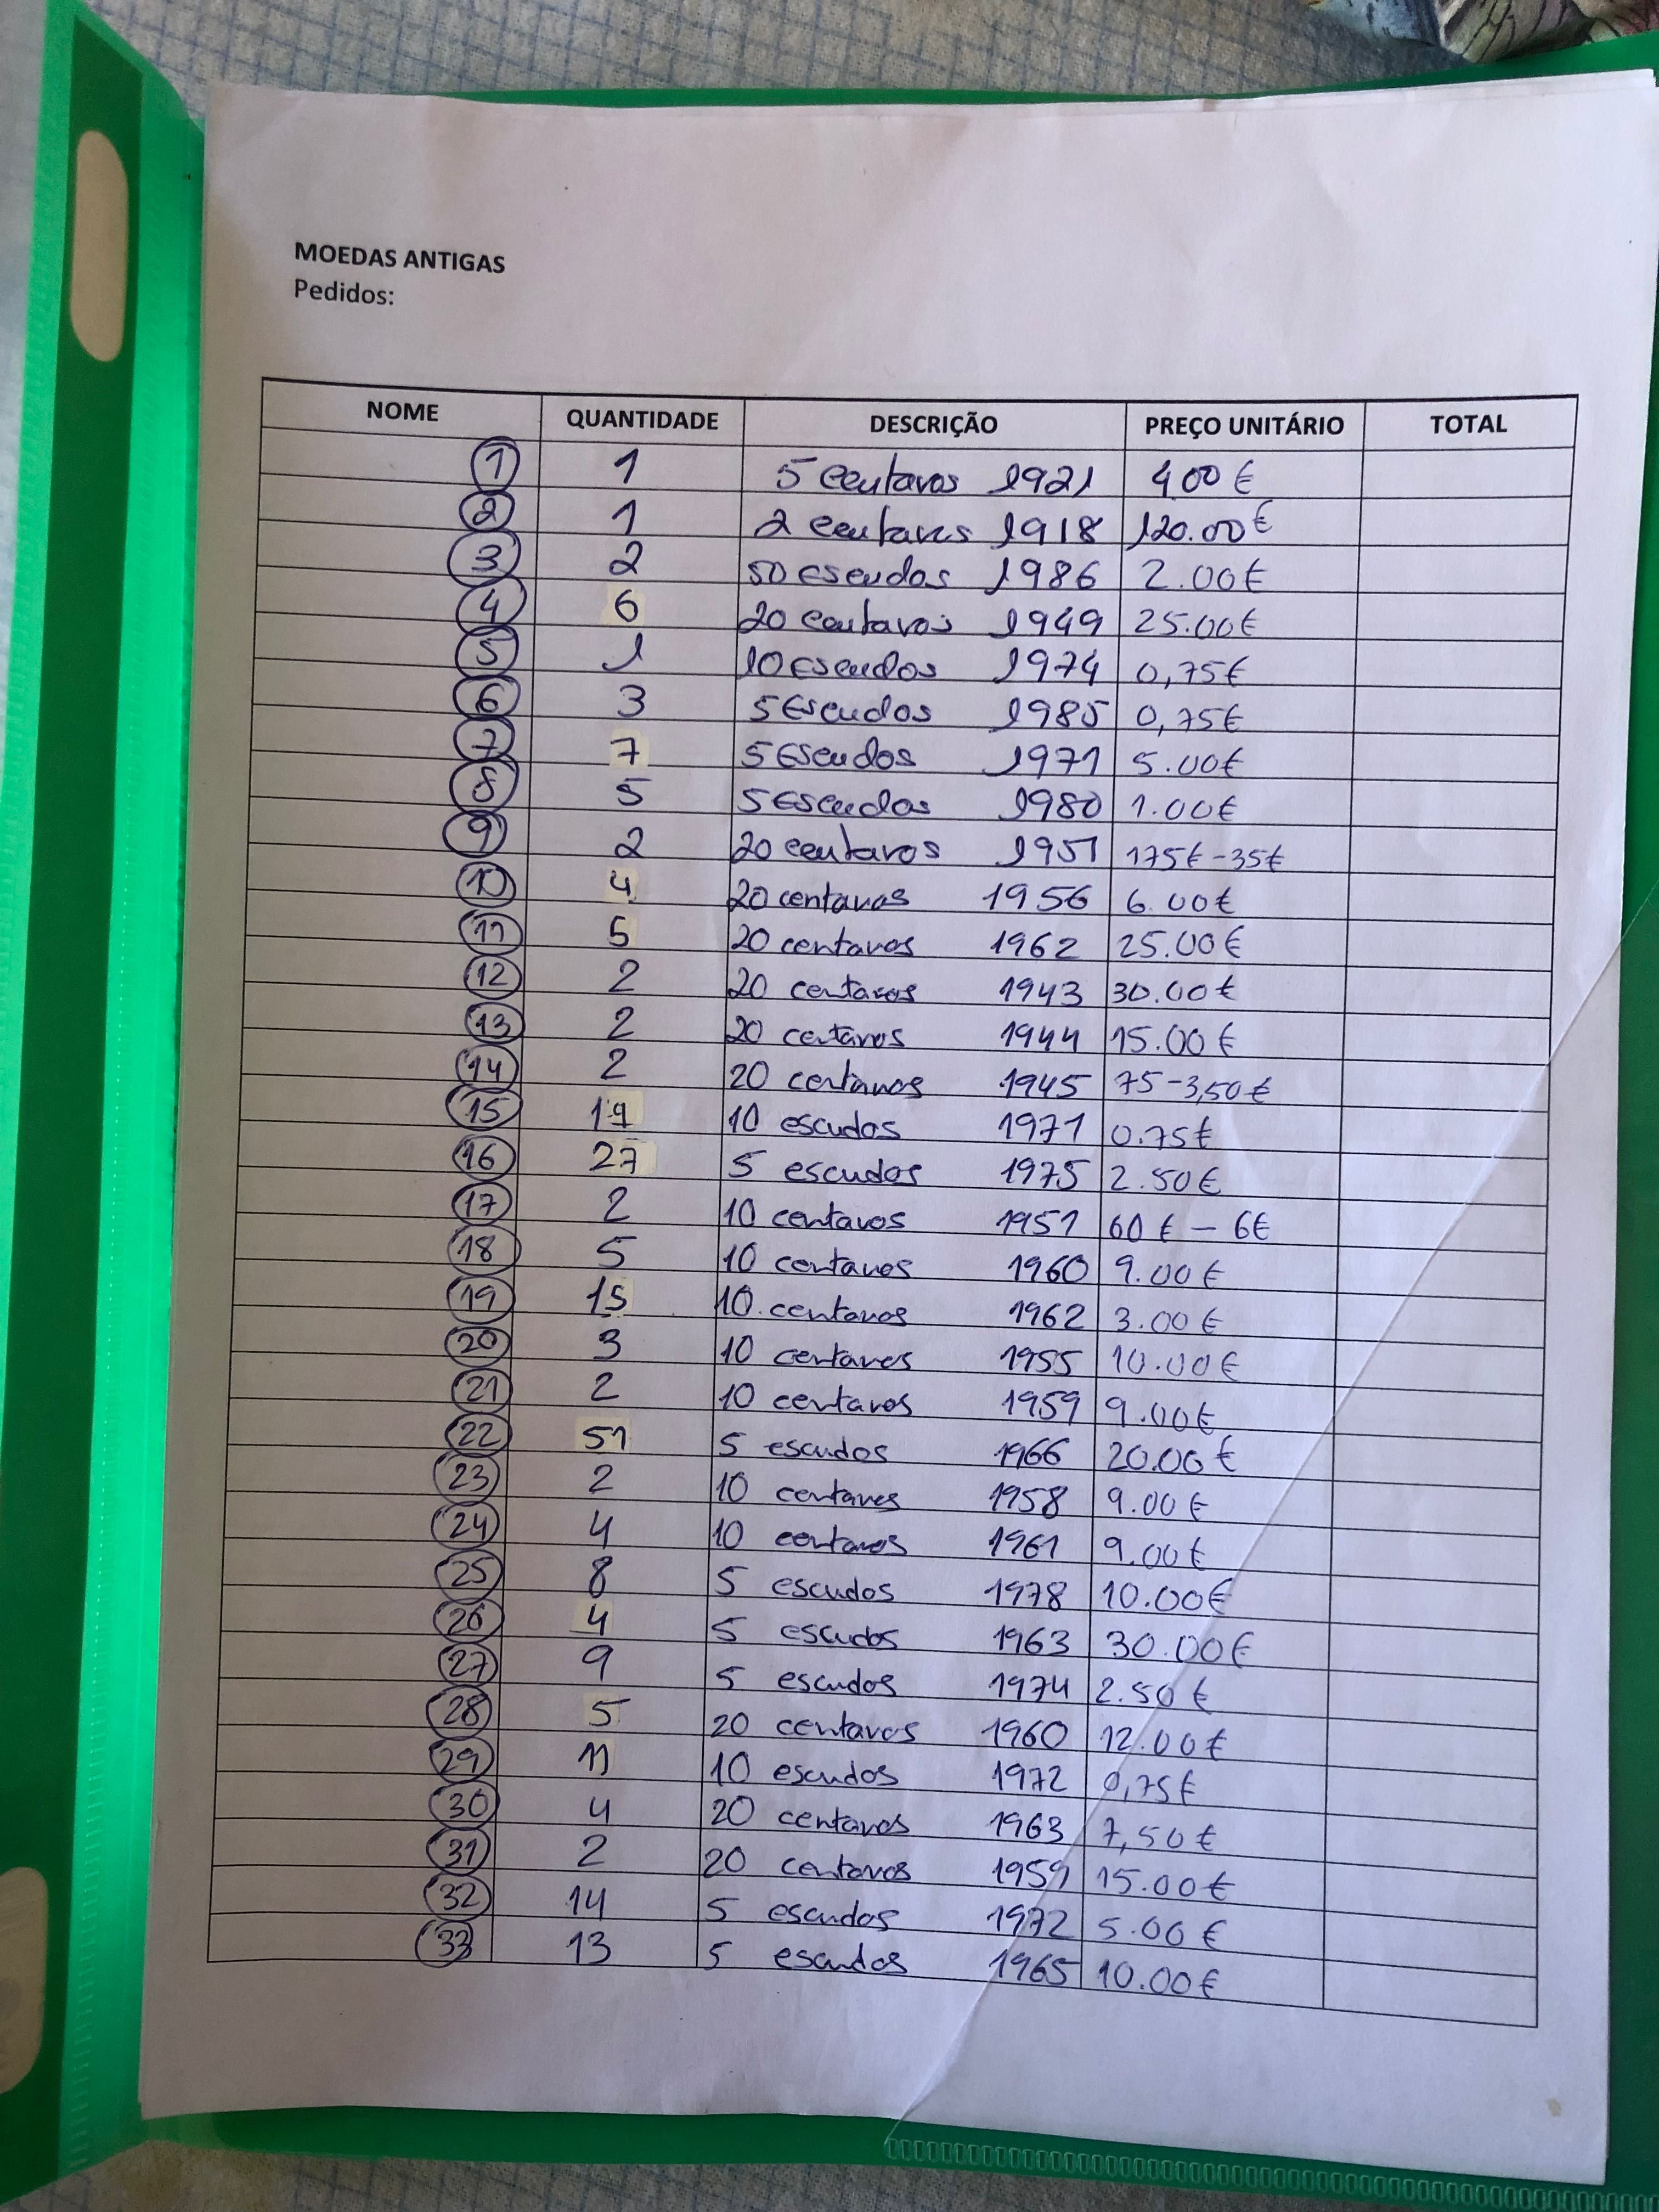 MOEDAS ANTIGAS
Pedidos:
NOME QUANTIDADE DESCRIÇÃO PREÇO UNITÁRIO TOTAL
1 1 5 centavos 1921 400 €
2 1 2 centavos 1918 120.00€
3 2 50 escudos 1986 2.00€
4 6 20 centavos 1949 25.00€
5 1 10 Escudos 1974 0,75€
6 3 5 Escudos 1985 0,75€
7 7 5 Escudos 1971 5.00€
8 5 5 Escudos 1980 1.00€
9 2 20 centavos 1951 175€-35€
10 4 20 centavos 1956 6.00€
11 5 20 centavos 1962 25.00€
12 2 20 centavos 1943 30.00€
13 2 20 centavos 1944 15.00€
14 2 20 centavos 1945 75-3,50€
15 10 escudos 1971 0.75€
16 27 5 escudos 1975 2.50€
17 2 10 centavos 1951 60 € - 6€
18 5 10 centavos 1960 9.00€
19 15 10. centavos 1962 3.00€
20 3 10 centavos 1955 10.00€
21 2 10 centavos 1959 9.00€
22 51 5 escudos 1966 20.00€
23 2 10 centavos 1958 9.00€
24 4 10 centavos 1961 9.00€
25 8 5 escudos 1978 10.00€
26 4 5 escudos 1963 30.00€
27 9 5 escudos 1974 2.50€
28 5 20 centavos 1960 12.00€
29 11 10 escudos 1972 0,75€
30 4 20 centavos 1963 7,50€
31 2 20 centavos 1959 15.00€
32 14 5 escudos 1972 5.00€
33 13 5 escudos 1965 10.00€